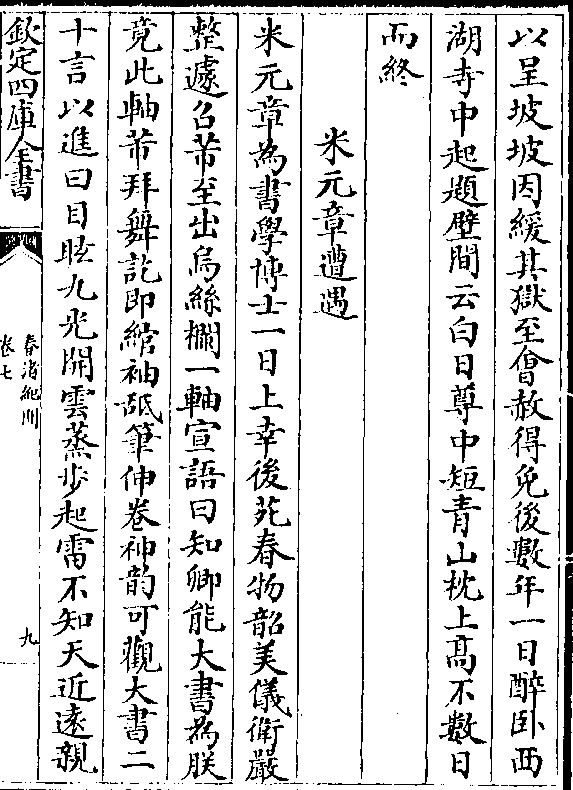 以呈坡坡因緩其獄至㑹赦得免後數年一日醉卧西
湖寺中起題壁間云白日尊中短青山枕上髙不數日
而終
米元章遭遇
米元章為書學博士一日上幸後苑春物韶美儀衛嚴
整遽召芾至出烏絲欄一軸宣語曰知卿能大書為朕
竟此軸芾拜舞訖即綰袖舐筆伸卷神韵可觀大書二
十言以進曰目眩九光開雲蒸步起雷不知天近逺親
欽定四庫全書
春渚紀聞
卷七
九